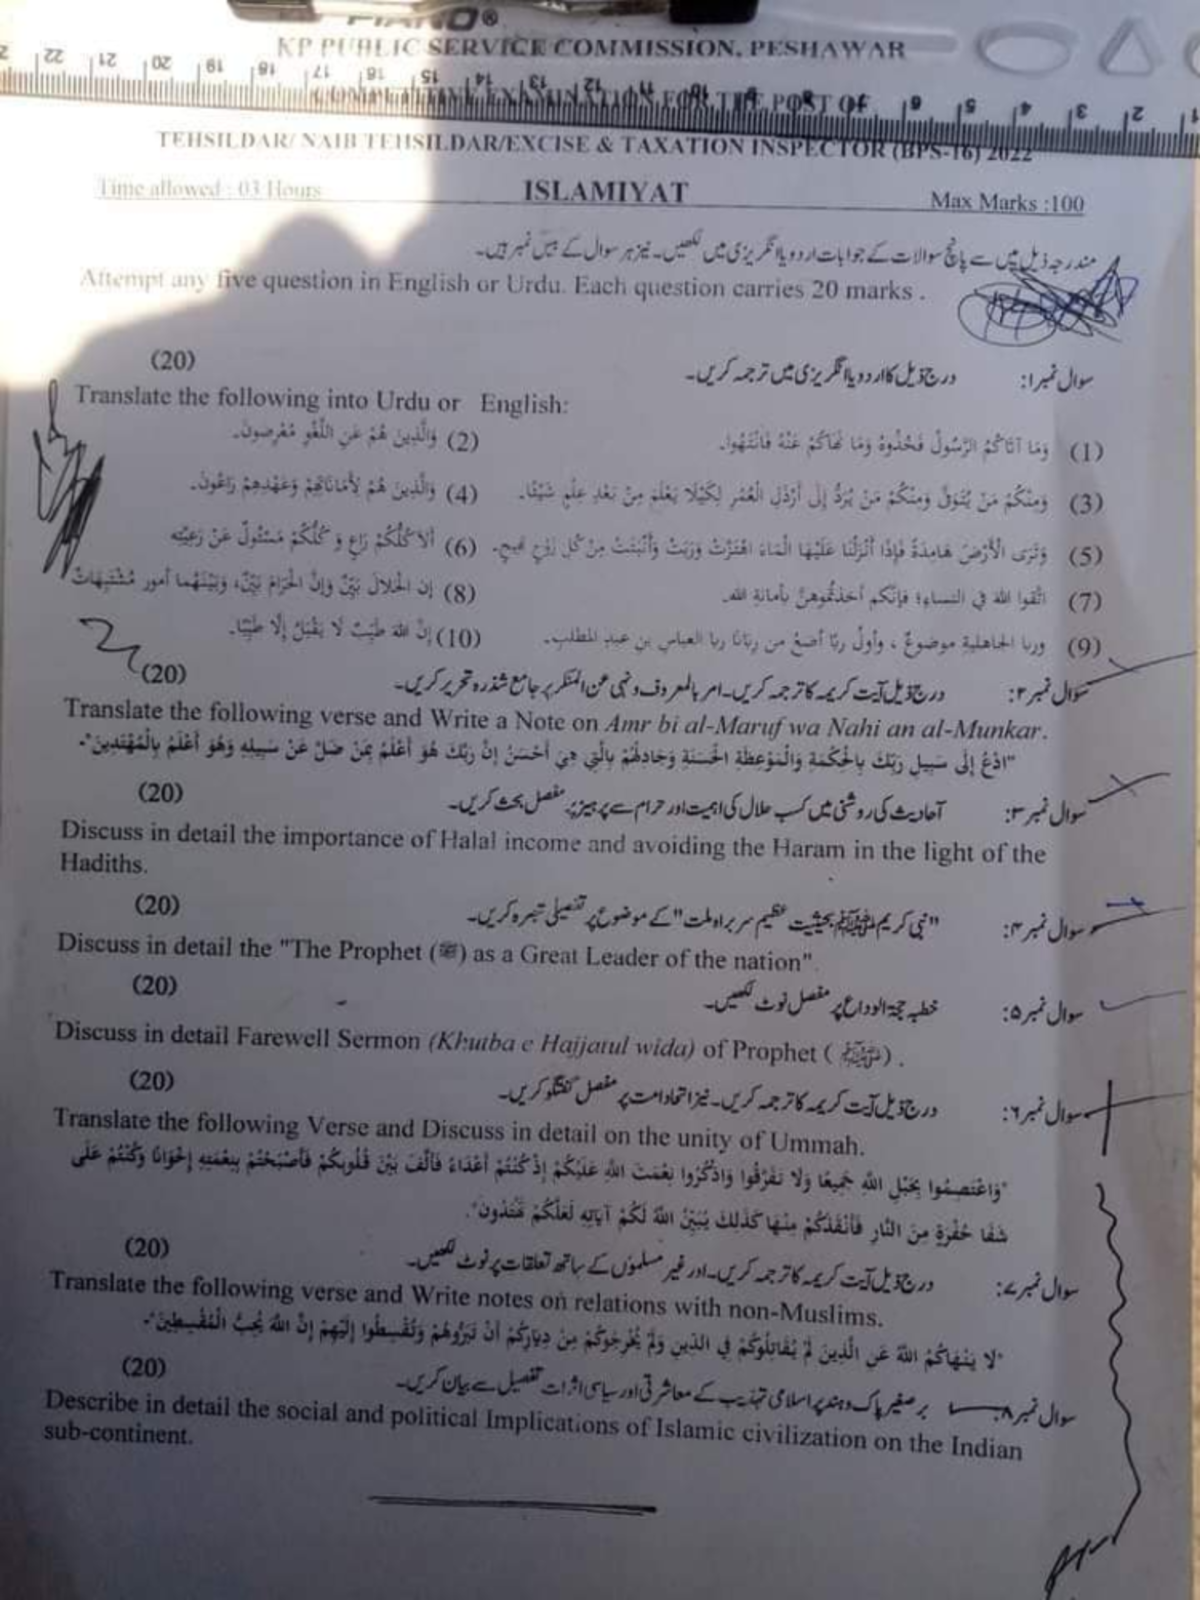 PIANO®
KP PUBLIC SERVICE COMMISSION, PESHAWAR
22 21 20 19 18 17 16 15 14 13 12 11 10 9 8 7 6 5 4 3 2 1
COMPETITIVE EXAMINATION FOR THE POST OF
TEHSILDAR/ NAIB TEHSILDAR/EXCISE & TAXATION INSPECTOR (BPS-16) 2022
Time allowed : 03 Hours ISLAMIYAT Max Marks :100
مندرجہ ذیل میں سے پانچ سوالات کے جوابات اردو یا انگریزی میں لکھیں۔ نیز ہر سوال کے بیس نمبر ہیں۔
Attempt any five question in English or Urdu. Each question carries 20 marks .
سوال نمبر۱: درج ذیل کا اردو یا انگریزی میں ترجمہ کریں۔ (20)
Translate the following into Urdu or English:
(1) وَمَا آتَاكُمُ الرَّسُولُ فَخُذُوهُ وَمَا نَهَاكُمْ عَنْهُ فَانْتَهُوا۔ (2) وَالَّذِينَ هُمْ عَنِ اللَّغْوِ مُعْرِضُونَ۔
(3) وَمِنْكُمْ مَنْ يُتَوَفَّى وَمِنْكُمْ مَنْ يُرَدُّ إِلَى أَرْذَلِ الْعُمُرِ لِكَيْلَا يَعْلَمَ مِنْ بَعْدِ عِلْمٍ شَيْئًا۔ (4) وَالَّذِينَ هُمْ لِأَمَانَاتِهِمْ وَعَهْدِهِمْ رَاعُونَ۔
(5) وَتَرَى الْأَرْضَ هَامِدَةً فَإِذَا أَنْزَلْنَا عَلَيْهَا الْمَاءَ اهْتَزَّتْ وَرَبَتْ وَأَنْبَتَتْ مِنْ كُلِّ زَوْجٍ بَهِيجٍ۔ (6) أَلَا كُلُّكُمْ رَاعٍ وَ كُلُّكُمْ مَسْئُولٌ عَنْ رَعِيَّتِه
(7) اتَّقوا اللهَ في النساءِ؛ فإنَّكم أخذتُموهنَّ بأمانةِ الله۔ (8) إن الحَلالَ بَيِّنٌ وإِنَّ الحَرَامَ بَيِّنٌ، وَبَيْنَهُما أمور مُشْتَبِهَاتٌ
(9) وربا الجاهليةِ موضوعٌ ، وأولُ ربًا أضعُ من رِبانَا ربا العباسِ بنِ عبدِ المطلبِ۔ (10) إِنَّ اللهَ طَيِّبٌ لَا يَقْبَلُ إِلَّا طَيِّبًا۔
سوال نمبر۲: درج ذیل آیت کریمہ کا ترجمہ کریں۔ امر بالمعروف و نہی عن المنکر پر جامع شذرہ تحریر کریں۔ (20)
Translate the following verse and Write a Note on Amr bi al-Maruf wa Nahi an al-Munkar.
"ادْعُ إِلَى سَبِيلِ رَبِّكَ بِالْحِكْمَةِ وَالْمَوْعِظَةِ الْحَسَنَةِ وَجَادِلْهُمْ بِالَّتِي هِيَ أَحْسَنُ إِنَّ رَبَّكَ هُوَ أَعْلَمُ بِمَنْ ضَلَّ عَنْ سَبِيلِهِ وَهُوَ أَعْلَمُ بِالْمُهْتَدِينَ"۔
سوال نمبر۳: آحادیث کی روشنی میں کسب حلال کی اہمیت اور حرام سے پرہیز پر مفصل بحث کریں۔ (20)
Discuss in detail the importance of Halal income and avoiding the Haram in the light of the
Hadiths.
سوال نمبر۴: "نبی کریم ﷺ بحیثیت عظیم سربراہ ملت" کے موضوع پر تفصیلی تبصرہ کریں۔ (20)
Discuss in detail the "The Prophet (ﷺ) as a Great Leader of the nation".
سوال نمبر۵: خطبہ حجۃ الوداع پر مفصل نوٹ لکھیں۔ (20)
Discuss in detail Farewell Sermon (Khutba e Hajjatul wida) of Prophet ( ﷺ) .
سوال نمبر۶: درج ذیل آیت کریمہ کا ترجمہ کریں۔ نیز اتحاد امت پر مفصل گفتگو کریں۔ (20)
Translate the following Verse and Discuss in detail on the unity of Ummah.
"وَاعْتَصِمُوا بِحَبْلِ اللَّهِ جَمِيعًا وَلَا تَفَرَّقُوا وَاذْكُرُوا نِعْمَتَ اللَّهِ عَلَيْكُمْ إِذْ كُنْتُمْ أَعْدَاءً فَأَلَّفَ بَيْنَ قُلُوبِكُمْ فَأَصْبَحْتُمْ بِنِعْمَتِهِ إِخْوَانًا وَكُنْتُمْ عَلَى
شَفَا حُفْرَةٍ مِنَ النَّارِ فَأَنْقَذَكُمْ مِنْهَا كَذَلِكَ يُبَيِّنُ اللَّهُ لَكُمْ آيَاتِهِ لَعَلَّكُمْ تَهْتَدُونَ"۔
سوال نمبر۷: درج ذیل آیت کریمہ کا ترجمہ کریں۔ اور غیر مسلموں کے ساتھ تعلقات پر نوٹ لکھیں۔ (20)
Translate the following verse and Write notes on relations with non-Muslims.
"لا يَنْهَاكُمُ اللَّهُ عَنِ الَّذِينَ لَمْ يُقَاتِلُوكُمْ فِي الدِّينِ وَلَمْ يُخْرِجُوكُمْ مِنْ دِيَارِكُمْ أَنْ تَبَرُّوهُمْ وَتُقْسِطُوا إِلَيْهِمْ إِنَّ اللَّهَ يُحِبُّ الْمُقْسِطِينَ"۔
سوال نمبر۸: برصغیر پاک و ہند پر اسلامی تہذیب کے معاشرتی اور سیاسی اثرات تفصیل سے بیان کریں۔ (20)
Describe in detail the social and political Implications of Islamic civilization on the Indian
sub-continent.